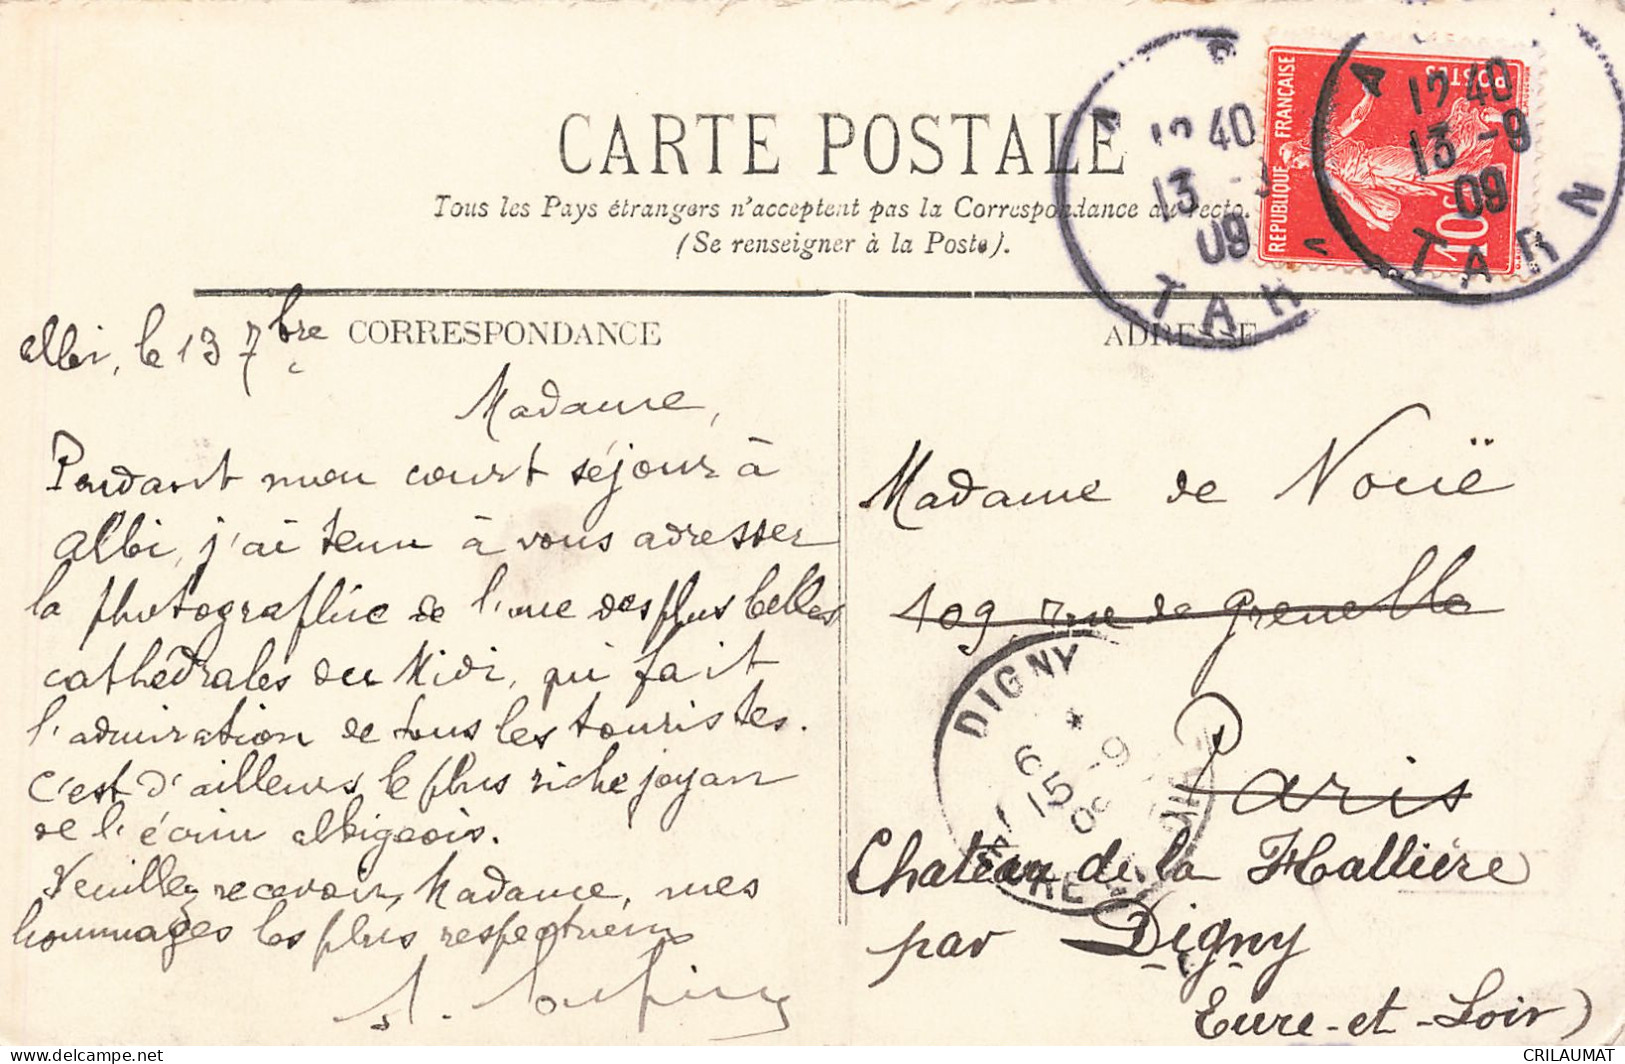 CARTE POSTALE
Tous les Pays étrangers n'acceptent pas la Correspondance au recto.
(Se renseigner à la Poste).
REPUBLIQUE FRANÇAISE
POSTES
10c
12 40
13 -9
09
TARN
12 40
13 -
09
TAR
CORRESPONDANCE
ADRESSE
Albi, le 13 7bre
Madame,
Pendant mon court séjour à
Albi, j'ai tenu à vous adresser
la photographie de l'une des plus belles
cathédrales du Midi, qui fait
l'admiration de tous les touristes.
C'est d'ailleurs le plus riche joyau
de l'écrin albigeois.
Veuillez recevoir, Madame, mes
hommages les plus respectueux
Madame de Nouë
109, rue de Grenelle
Paris
Chateau de la Hallière
par Digny
Eure-et-Loir)
DIGNY
6
15 -9
09
delcampe.net
CRILAUMAT